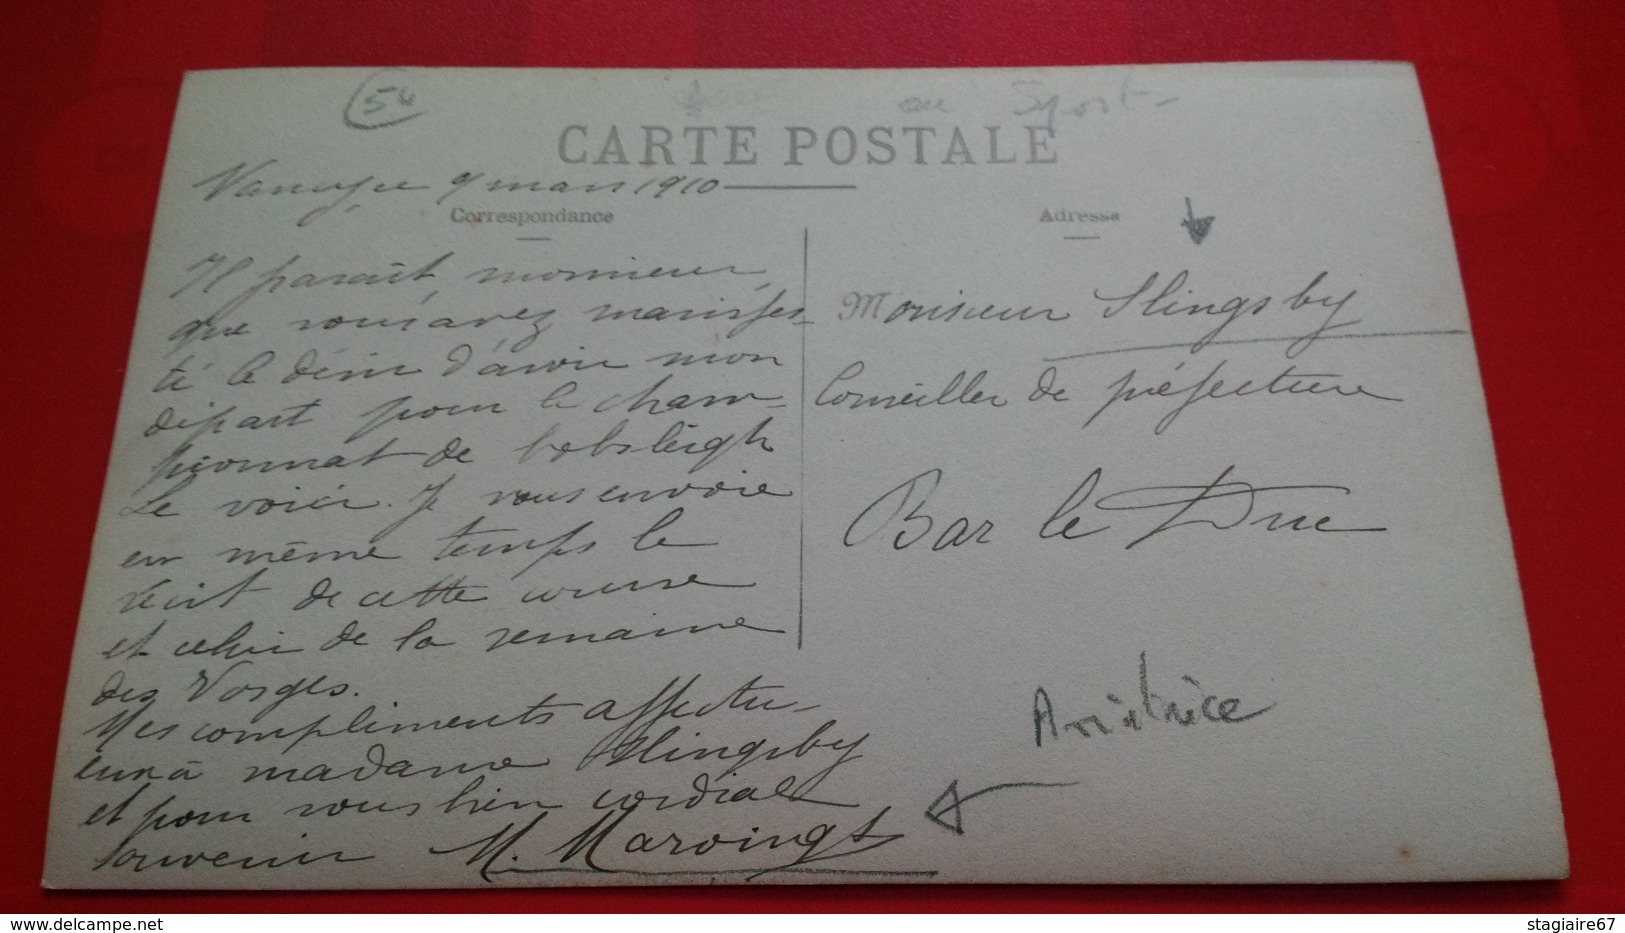 54
au Sport
CARTE POSTALE
Nancy, le 9 mars 1910
Correspondance
Il parait, monsieur,
que vous avez manifes-
té le désir d'avoir mon
départ pour le cham-
pionnat de bobsleigh
Le voici. Je vous envoie
en même temps le
récit de cette course
et celui de la semaine
des Vosges.
Mes compliments affectu-
eux à madame Slingsby
et pour vous bien cordial
souvenir M. Marvingt
Adresse
Monsieur Slingsby
Conseiller de préfecture
Bar le Duc
Aviatrice
stagiaire67